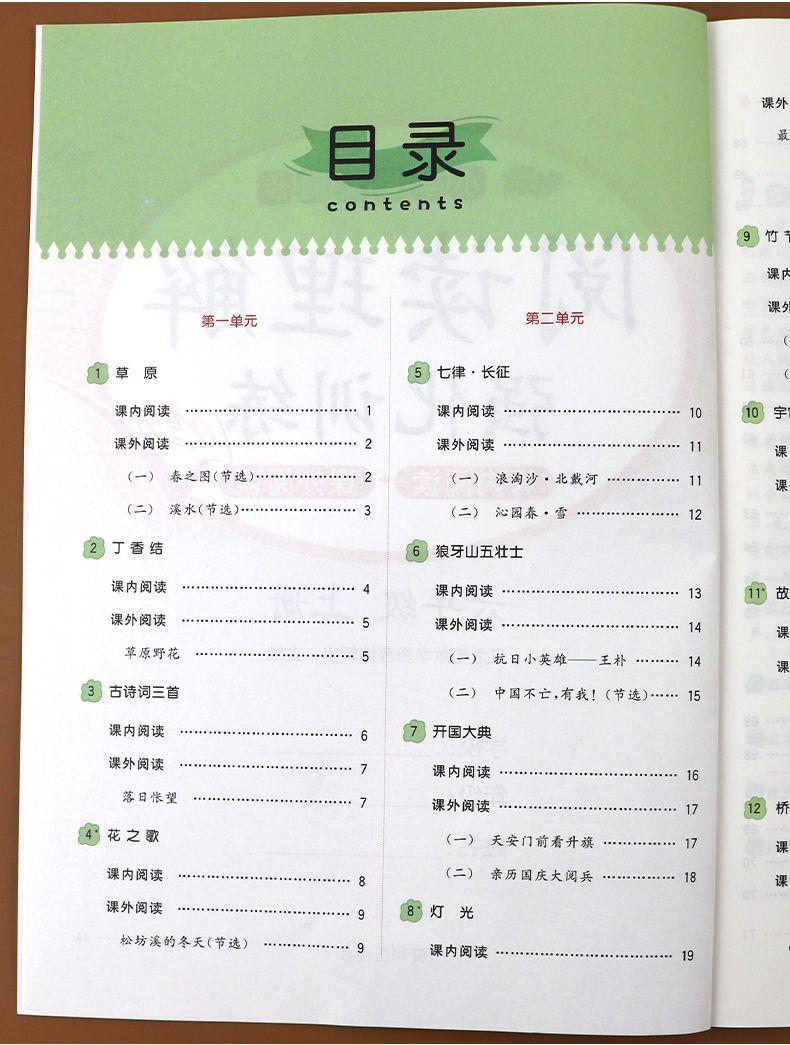 目录
contents
第一单元
1 草 原
课内阅读 …… 1
课外阅读 …… 2
（一） 春之图(节选)…… 2
（二） 溪水(节选)…… 3
2 丁香结
课内阅读 …… 4
课外阅读 …… 5
草原野花 …… 5
3 古诗词三首
课内阅读 …… 6
课外阅读 …… 7
落日怅望 …… 7
4* 花之歌
课内阅读 …… 8
课外阅读 …… 9
松坊溪的冬天(节选) …… 9
第二单元
5 七律·长征
课内阅读 …… 10
课外阅读 …… 11
（一） 浪淘沙·北戴河 …… 11
（二） 沁园春·雪 …… 12
6 狼牙山五壮士
课内阅读 …… 13
课外阅读 …… 14
（一） 抗日小英雄——王朴 …… 14
（二） 中国不亡，有我！(节选)…… 15
7 开国大典
课内阅读 …… 16
课外阅读 …… 17
（一） 天安门前看升旗 …… 17
（二） 亲历国庆大阅兵 …… 18
8* 灯 光
课内阅读 …… 19
课外
最
9 竹节
课内
课外
10 宇
课
课
11* 故
课
课
12 桥
课
课